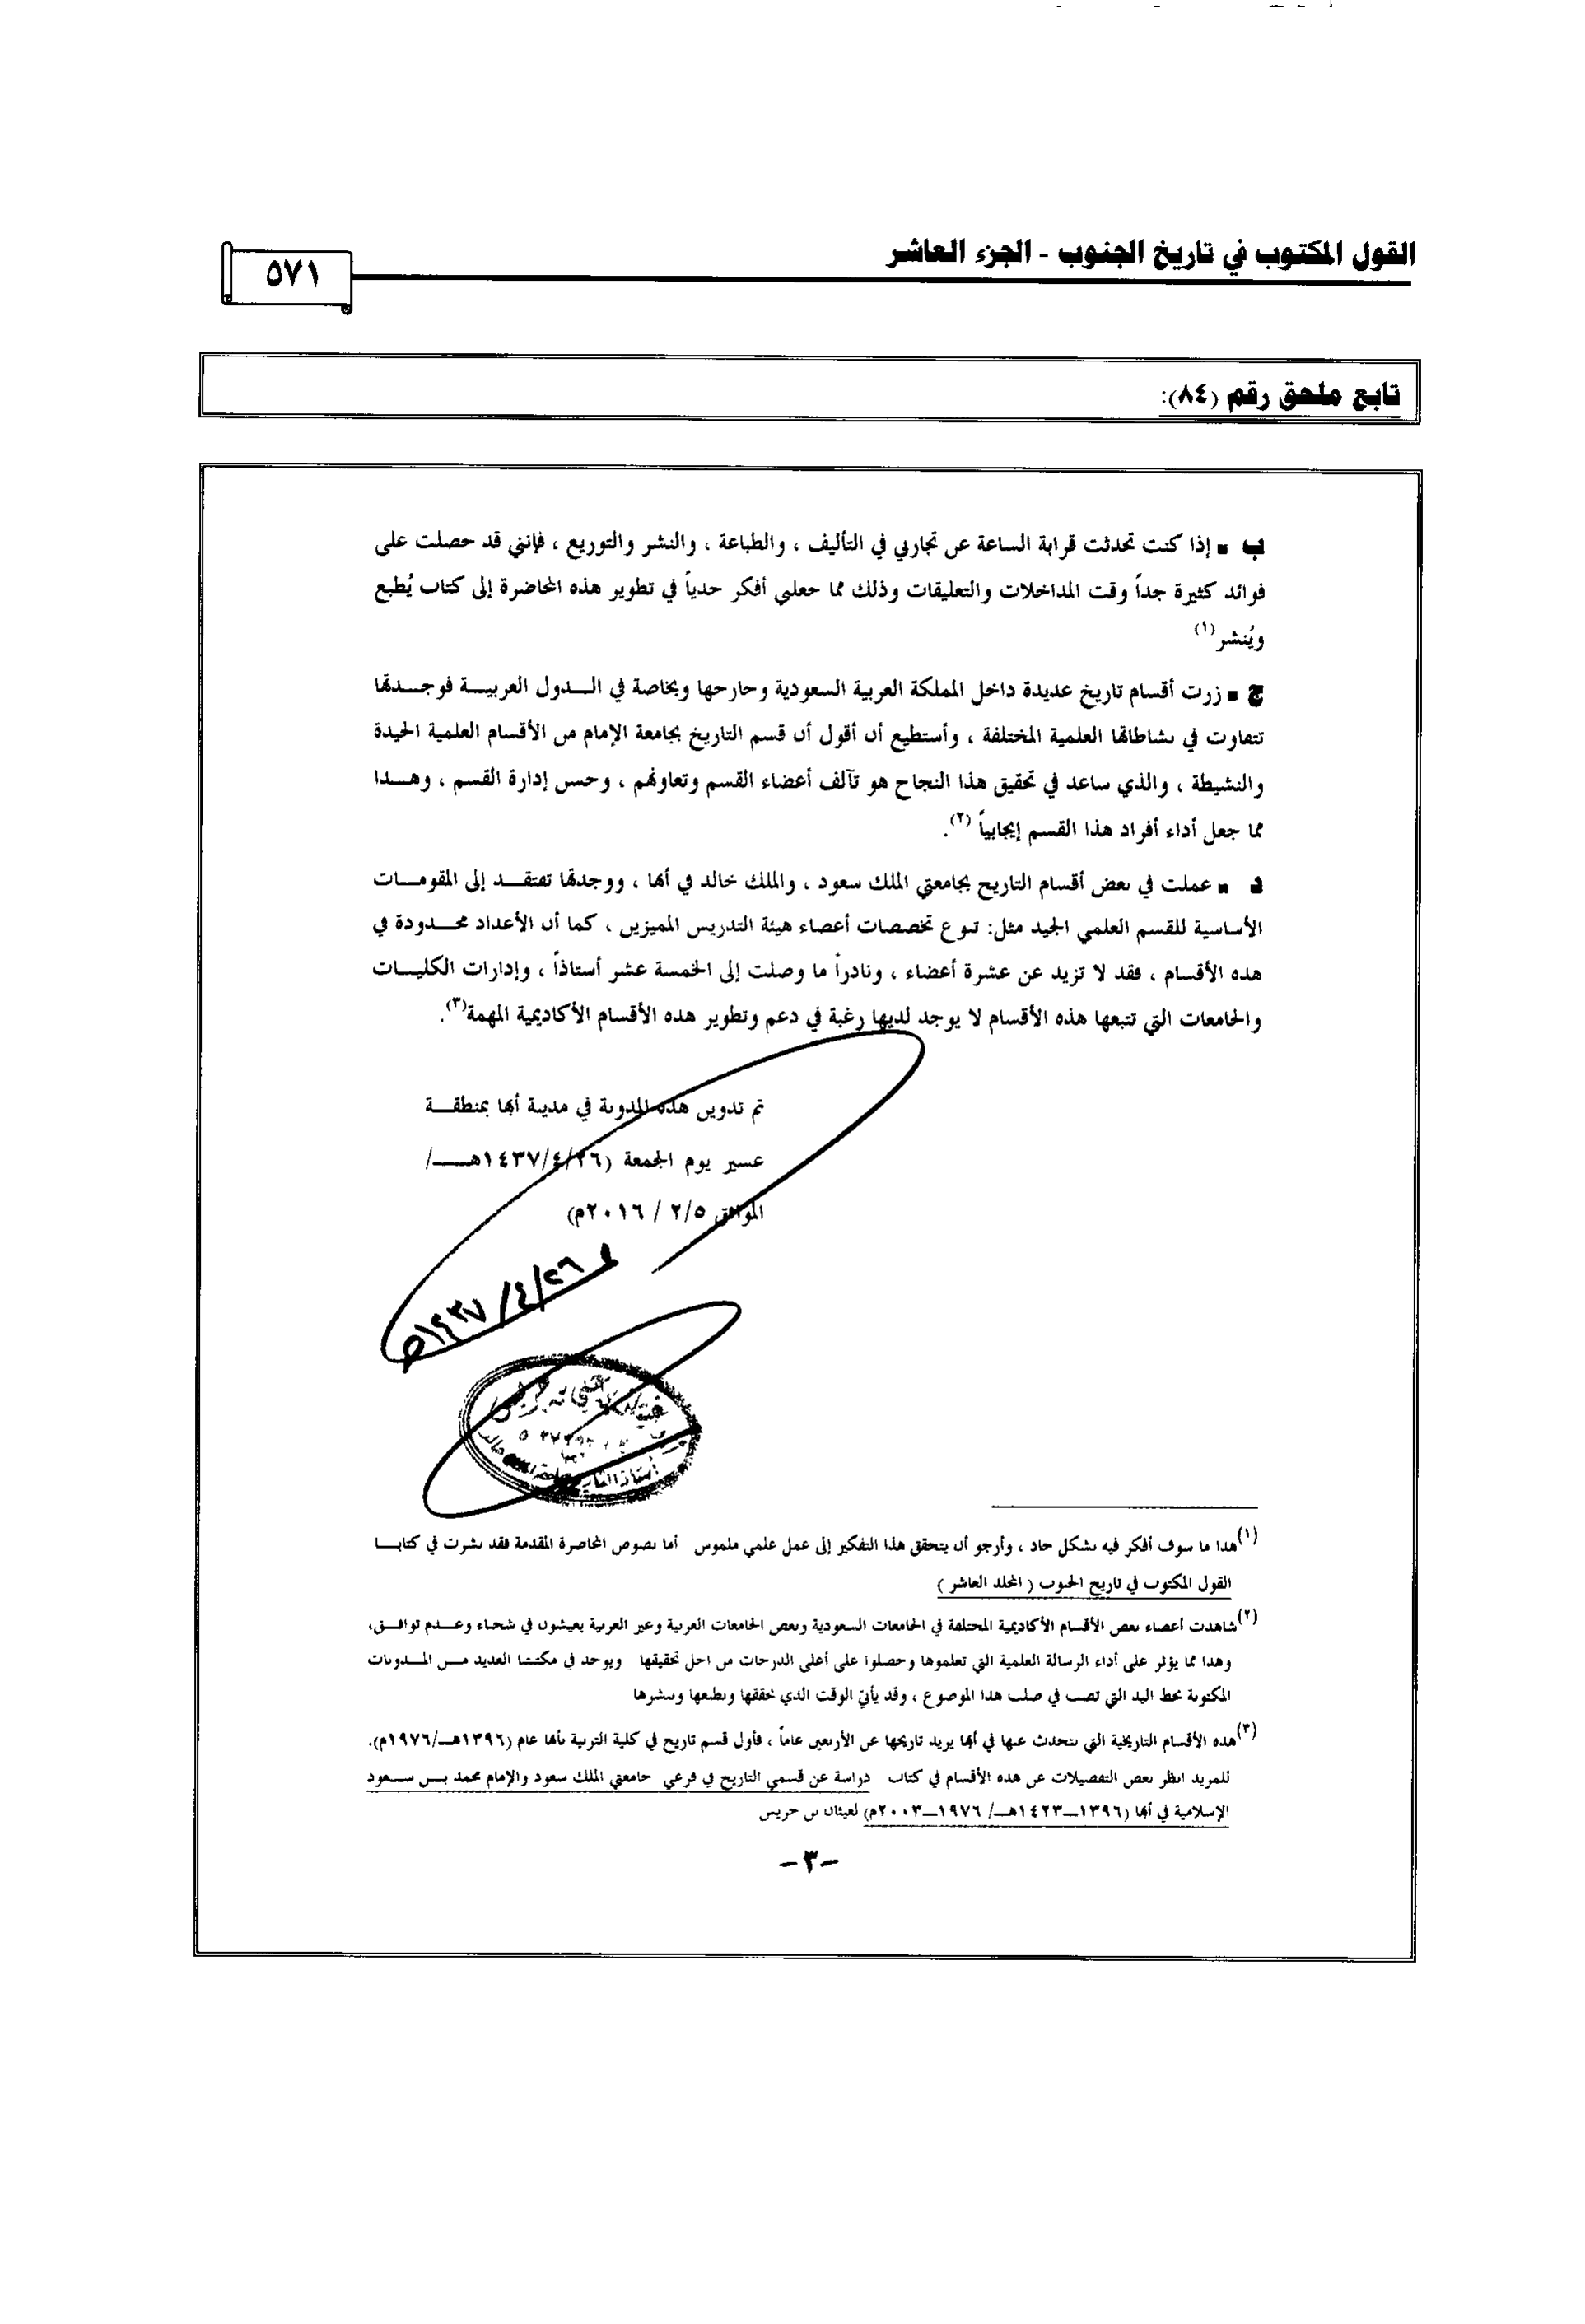 القول المكتوب في تاريخ الجنوب - الجزء العاشر
٥٧١
تابع ملحق رقم (٨٤):
ب ▪ إذا كنت تحدثت قرابة الساعة عن تجاربي في التأليف ، والطباعة ، والنشر والتوزيع ، فإنني قد حصلت على
فوائد كثيرة جداً وقت المداخلات والتعليقات وذلك مما جعلني أفكر جدياً في تطوير هذه المحاضرة إلى كتاب يُطبع
ويُنشر(١)
ج ▪ زرت أقسام تاريخ عديدة داخل المملكة العربية السعودية وخارجها وبخاصة في الـدول العربيـة فوجـدتها
تتفاوت في نشاطاتها العلمية المختلفة ، وأستطيع أن أقول أن قسم التاريخ بجامعة الإمام من الأقسام العلمية الجيدة
والنشيطة ، والذي ساعد في تحقيق هذا النجاح هو تآلف أعضاء القسم وتعاونهم ، وحسن إدارة القسم ، وهـذا
مما جعل أداء أفراد هذا القسم إيجابياً (٢).
د ▪ عملت في بعض أقسام التاريخ بجامعتي الملك سعود ، والملك خالد في أبها ، ووجدتها تفتقـد إلى المقومـات
الأساسية للقسم العلمي الجيد مثل: تنوع تخصصات أعضاء هيئة التدريس المميزين ، كما أن الأعداد محـدودة في
هذه الأقسام ، فقد لا تزيد عن عشرة أعضاء ، ونادراً ما وصلت إلى الخمسة عشر أستاذاً ، وإدارات الكليـات
والجامعات التي تتبعها هذه الأقسام لا يوجد لديها رغبة في دعم وتطوير هذه الأقسام الأكاديمية المهمة(٣).
تم تدوين هذه المدونة في مدينة أبها بمنطقـة
عسير يوم الجمعة (١٤٣٧/٤/٢٦هـــ/
الموافق ٢/٥ / ٢٠١٦م)
١٤٣٧/٤/٢٦هـ
(١)هذا ما سوف أفكر فيه بشكل جاد ، وأرجو أن يتحقق هذا التفكير إلى عمل علمي ملموس أما نصوص المحاضرة المقدمة فقد نشرت في كتابنـا
القول المكتوب في تاريخ الجنوب ( المجلد العاشر )
(٢)شاهدت أعضاء بعض الأقسام الأكاديمية المختلفة في الجامعات السعودية وبعض الجامعات العربية وغير العربية يعيشون في شحناء وعـدم توافـق،
وهذا مما يؤثر على أداء الرسالة العلمية التي تعلموها وحصلوا على أعلى الدرجات من اجل تحقيقها ويوجد في مكتبتنا العديد مـن المـدونات
المكتوبة بخط اليد التي تصب في صلب هذا الموضوع ، وقد يأتي الوقت الذي نحققها ونطبعها وننشرها
(٣)هذه الأقسام التاريخية التي نتحدث عنها في أبها يزيد تاريخها عن الأربعين عاماً ، فأول قسم تاريخ في كلية التربية بأبها عام (١٣٩٦هـ/١٩٧٦م).
للمزيد انظر بعض التفصيلات عن هذه الأقسام في كتاب دراسة عن قسمي التاريخ في فرعي جامعتي الملك سعود والإمام محمد بـن سـعود
الإسلامية في أبها (١٣٩٦ـ١٤٢٣هـ/ ١٩٧٦ـ٢٠٠٣م) لغيثان بن جريس
-٣-